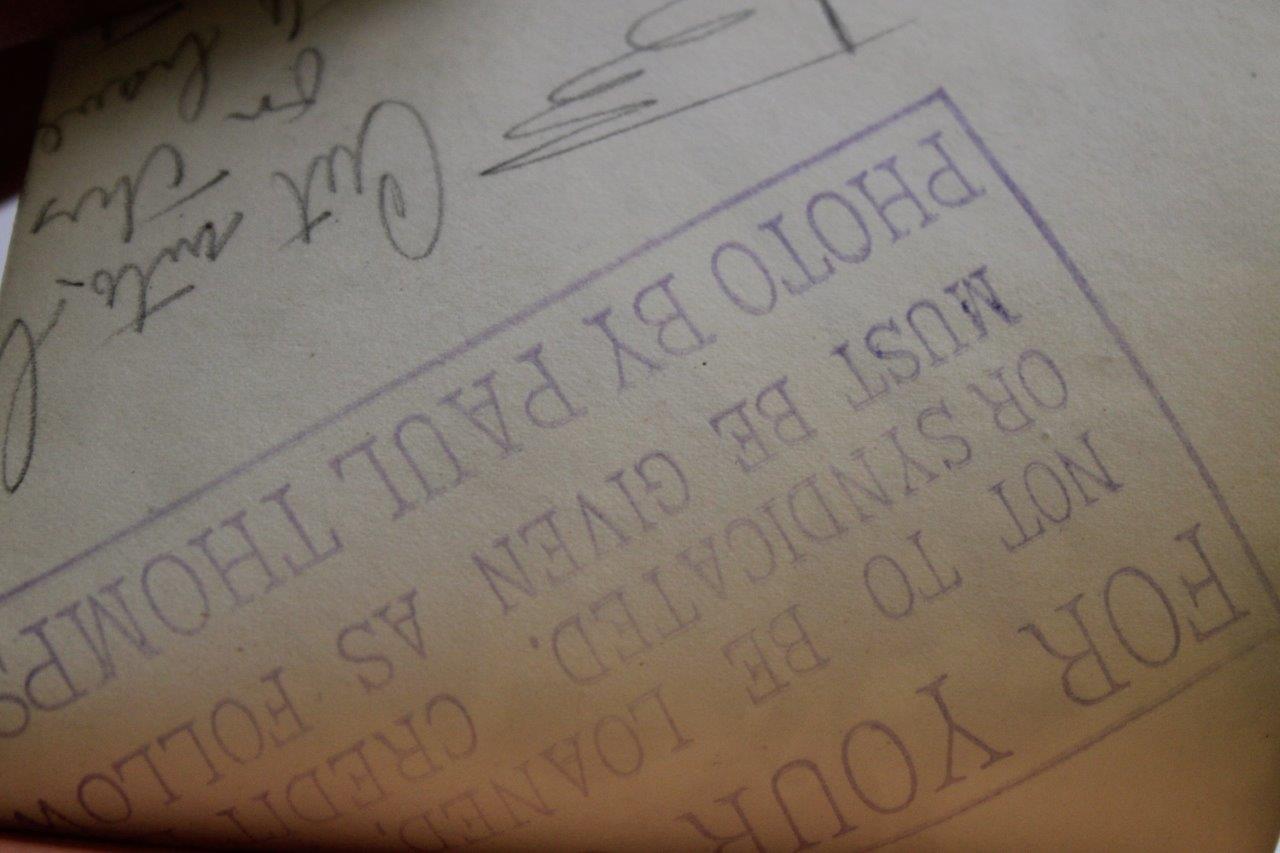 FOR YOUR
NOT TO BE LOANED,
OR SYNDICATED. CREDIT
MUST BE GIVEN AS FOLLOW
PHOTO BY PAUL THOMPS
Cut into
or
have